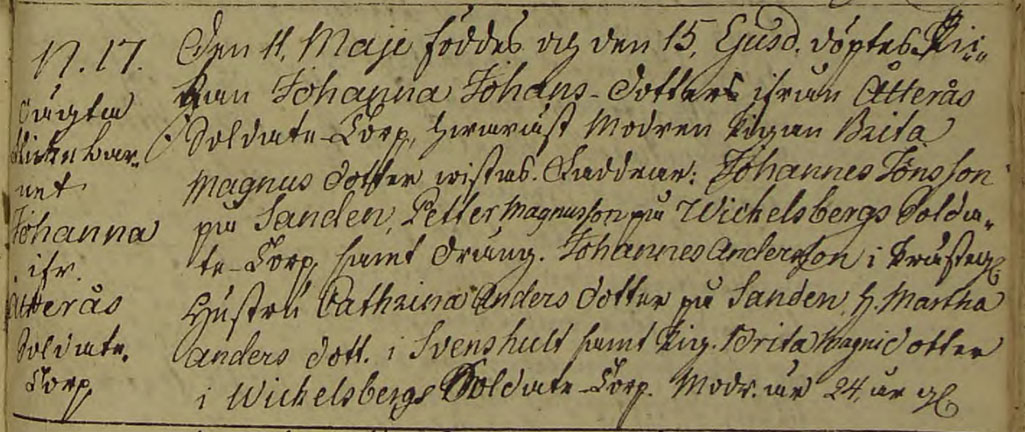 N. 17.
Oägta
flickebar-
net
Johanna
ifr.
Atterås
Soldate-
Torp
Den 11. Maje föddes og den 15, Ejusd. döptes Pii-
gan Johanna Johans-dotters ifrån Åtterås
Soldate-Torp, hwaräst Modren Pigan Brita
Magnus dotter wistas. Faddrar: Johannes Jönsson
på Sanden, Petter Magnusson på Wickelsbergs Solda-
te-Torp, samt dräng. Johannes Andersson i
Hustru Cathrina Anders dotter på Sanden, H. Martha
Anders dott. i Svenshult samt Pig. Brita Magni dotter
i Wickelsbergs Soldate-Torp. Modr. är 24, år gl.